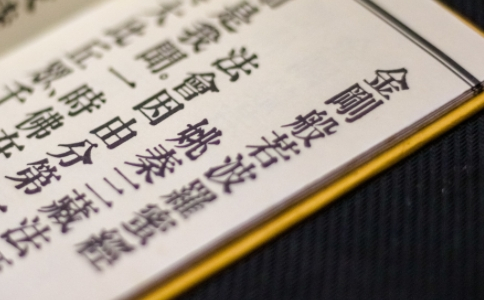 金剛般若波羅蜜經
姚秦三藏法
法會因由分第
是我聞。一時佛在
大比丘眾、千